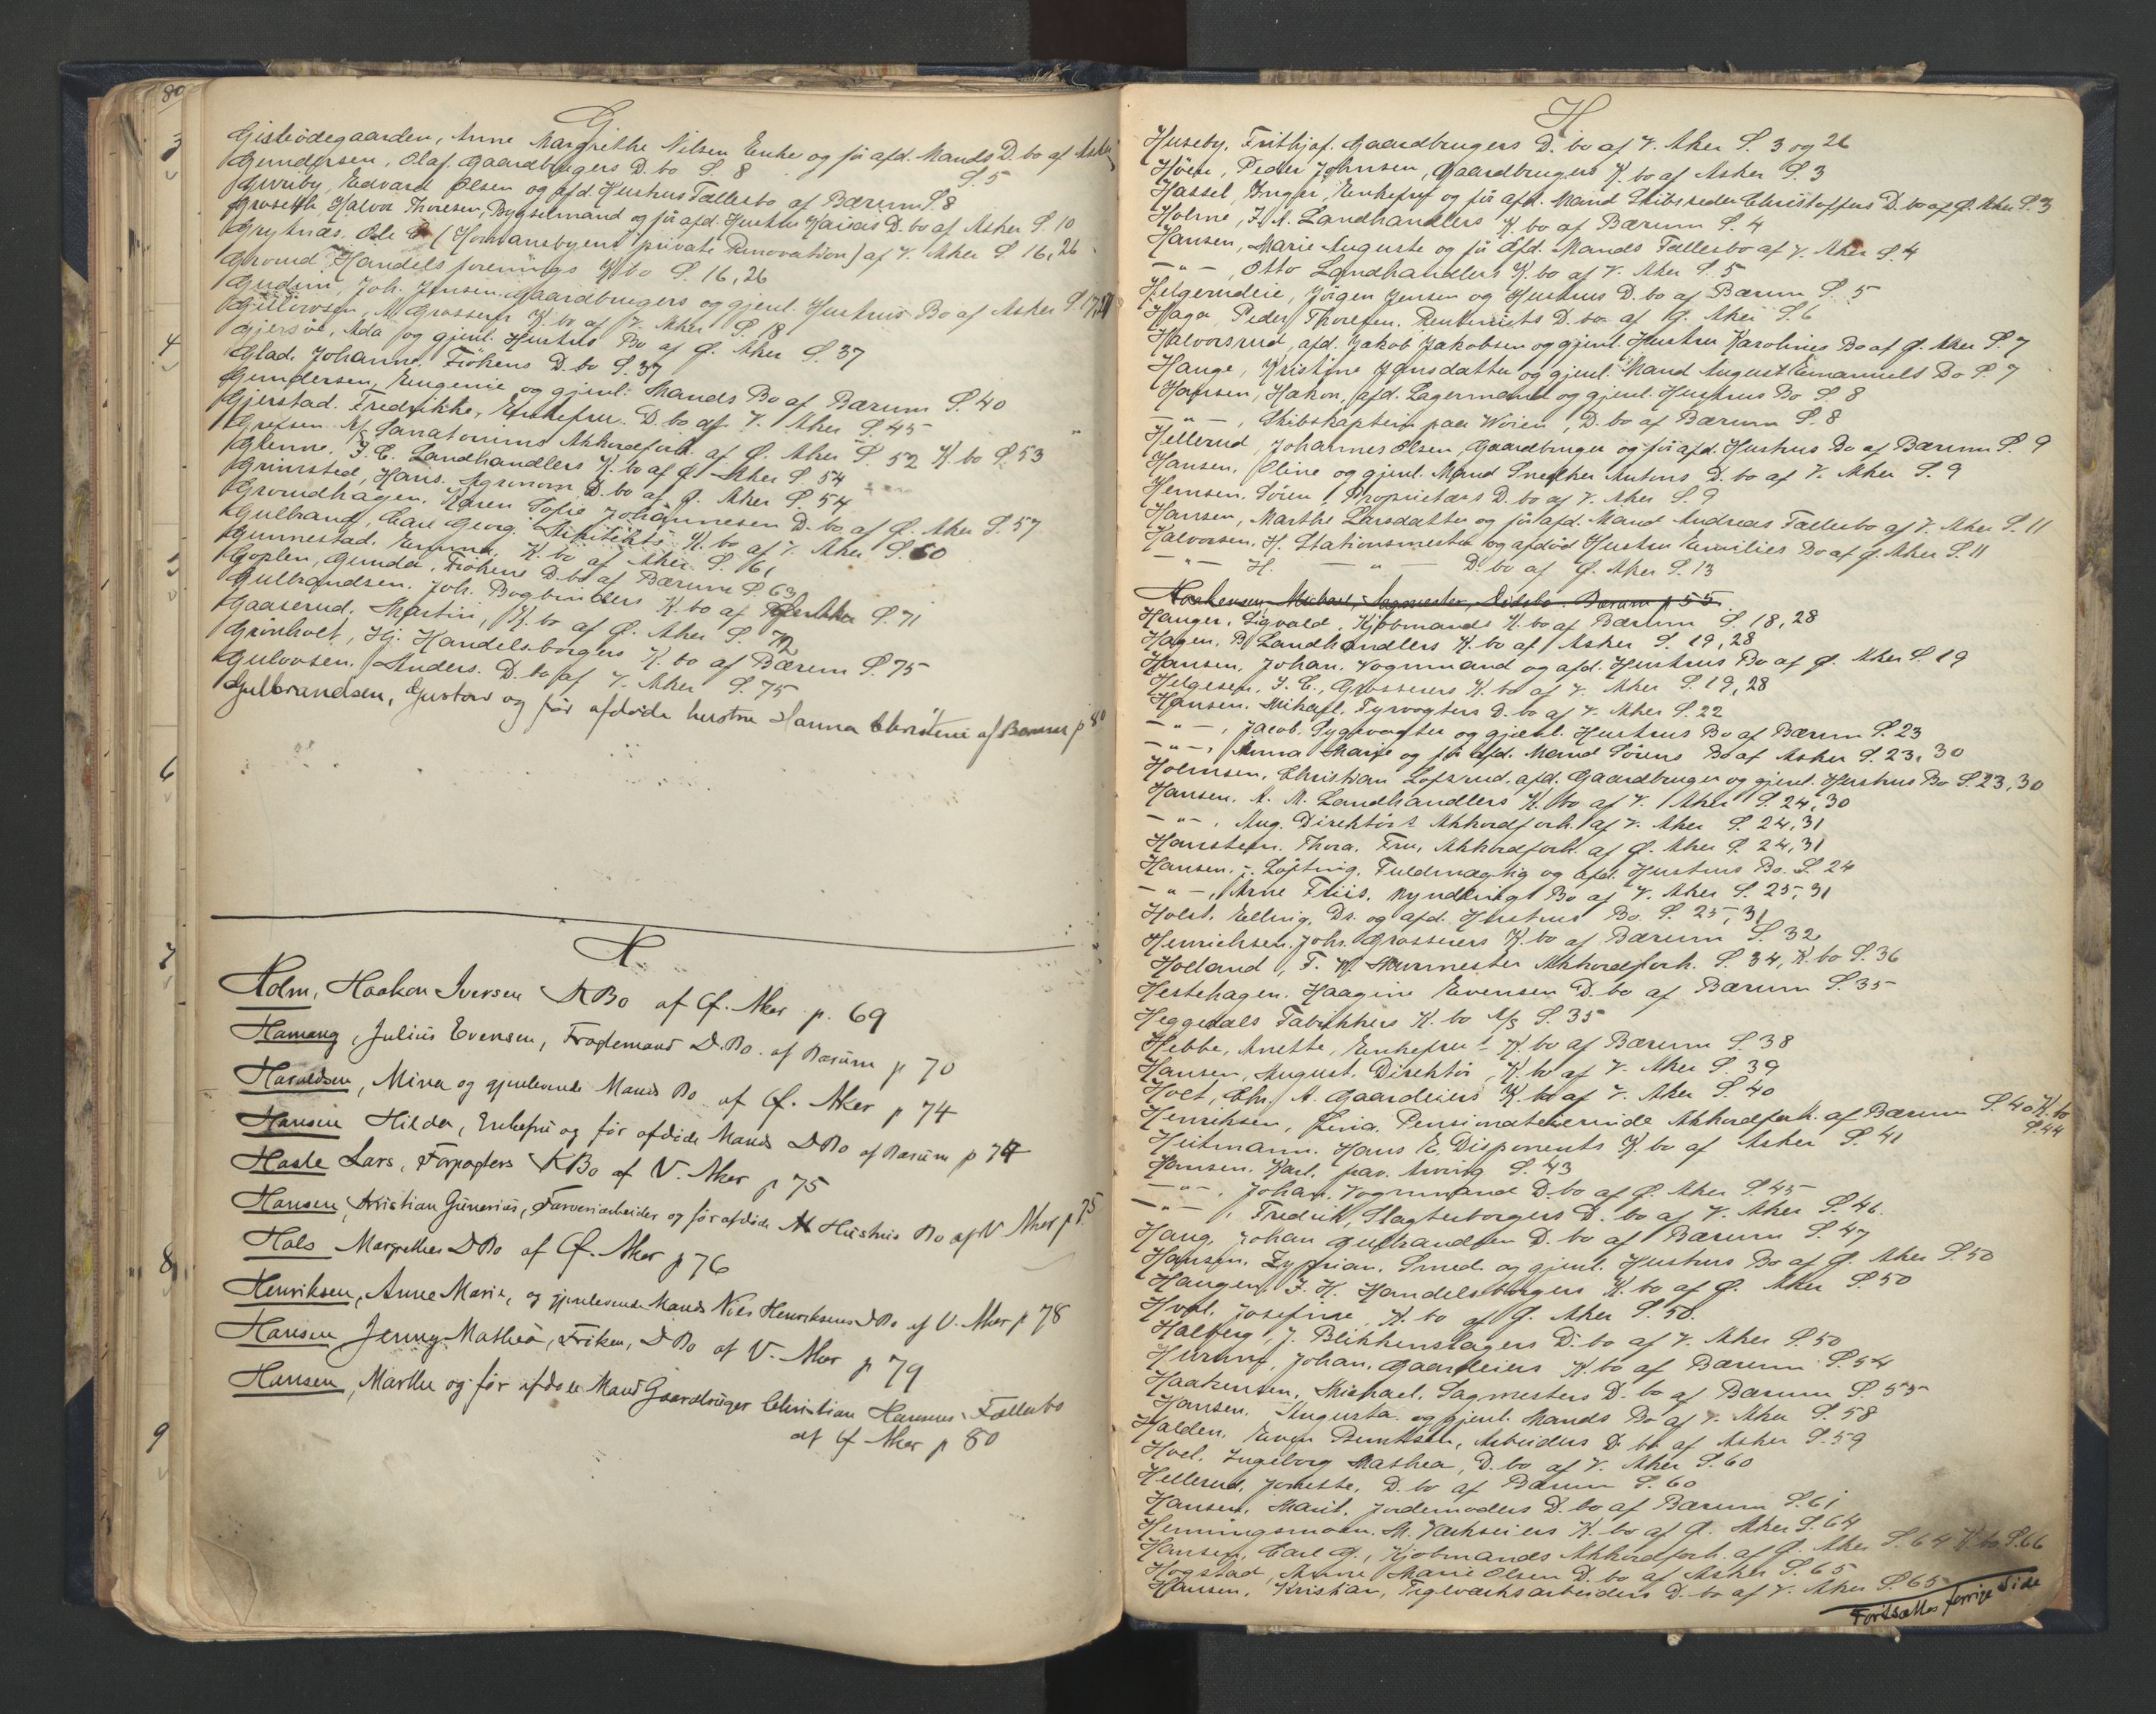 80
3
4
5
6
7
8
9
G
Gisleödegaarden, Anne Margrethe Nilsen Enke og før afd. Mands D. bo af Asker S. 5
Gundersen, Olaf, Gaardbrugers D. bo S. 8
Gureby, Edvard Olsen og afd. Hustrus Fællesbo af Bærum S. 8
Groseth, Halvor Thoresen, Bygselmand og før afd. Hustru Kaisas D. bo af Asker S. 10
Grytnæs, Ole (Homansbyens private Renovation) af V. Aker S. 16, 26
Grorud Handelsforenings K. bo S. 16, 26
Gudim, Joh. Jensen, Gaardbrugers og gjenl. Hustrus Bo af Asker S. 17
Gulliksen, M. Grosserer K. bo af V. Aker S. 18
Gjersöe, Ada og gjenl. Hustrus Bo af Ø. Aker S. 37
Glad, Johanne, Frökens D. bo S. 37
Gundersen, Eugenie og gjenl. Mands Bo af Bærum S. 40
Gjerstad, Fredrikke, Enkefru. D. bo af V. Aker S. 45
Grefsen A/S Sanatoriums Akkordforh. af Ø. Aker S. 52 K. bo S. 53
Glenne, J. C. Landhandlers K. bo af Ø. Aker S. 54
Grimsted, Hans. Agronom D. bo af Ø. Aker S. 54
Grorudhagen, Karen Sofie Johannesen D. bo af Ø. Aker S. 57
Gulbrand, Carl Georg, Arkitekts K. bo af V. Aker S. 60
Gunnestad, Emma, K. bo af Aker S. 61
Goplen, Gunda, Frökens D. bo af Bærum S. 63
Gulbrandsen, Joh. Bogbinders K. bo af Aker S. 71
Gaaserud, Martin, K. bo af Ø. Aker S. 72
Grönholt, Hj. Handelsborgers K. bo af Bærum S. 75
Gulovsen, Anders. D. bo af V. Aker S. 75
Gulbrandsen, Gustav og før afdøde hustru Hanna Christine af Bærum p 80
H
Holm, Haakon Iversen KBo af Ø. Aker p. 69
Hamang, Julius Evensen, Fragtemand D.Bo. af Bærum p 70
Haraldsen, Mina og gjenlevende Mands Bo af Ø. Aker p 74
Hansen Hilda, Enkefru og før afdøde Mands DBo af Bærum p 74
Hasle Lars, Forpagters KBo af V. Aker p 75
Hansen, Kristian Gunerius, Farveriarbeider og før afdøde Hustrus Bo af V Aker p 75
Hals Margrethes DBo af Ø. Aker p 76
Henriksen, Anne Marie, og gjenlevende Mands Nils Henriksens DBo af V. Aker p 78
Hansen Jenny Mathea, Frøken, DBo af V. Aker p 79
Hansen, Marthe og før afdøde Mand Gaardbruger Christian Hansens Fællesbo
af Ø Aker p 80
H
Huseby, Frithjof, Gaardbrugers D. bo af V. Aker S. 3 og 26
Höen, Peder Johnsen, Gaardbrugers K. bo af Asker S. 3
Hassel, Inger, Enkefru og før afd. Mand Skibsreder Christoffers D. bo af Ø. Aker S. 3
Holme, J. A. Landhandlers K. bo af Bærum S. 4
Hansen, Marie Auguste og før afd. Mands Fællesbo af V. Aker S. 4
— " — , Otto Landhandlers K. bo af V. Aker S. 5
Helgerudeie, Jörgen Jensen og Hustrus D. bo af Bærum S. 5
Haga, Peder Thoresen, Rentenists D. bo af Ø. Aker S. 6
Halvorsrud, afd. Jakob Jakobsen og gjenl. Hustru Karolines Bo af Ø. Aker S. 7
Hauge, Kristine Hansdatter og gjenl. Mand August Emanuels Bo S. 7
Hansen, Hakon, afd. Lagermand og gjenl. Hustrus Bo S. 8
— " — , Skibskaptein paa Woien, D. bo af Bærum S. 8
Hellerud, Johannes Olsen, Gaardbruger og før afd. Hustrus Bo af Bærum S. 9
Hansen, Oline og gjenl. Mand Snedker Antons D. bo af V. Aker S. 9
Hemsen, Sören, Proprietærs D. bo af V. Aker S. 9
Hansen, Marthe Larsdatter og før afd. Mand Andreas Fællesbo af V. Aker S. 11
Halvorsen, H. Stationsmester og afdöd Hustru Emilies Bo af Ø. Aker S. 11
— " — H. — " — D. bo af Ø. Aker S. 13
Haakensen, Michael, Sagmester, Dødsbo. Bærum p 55
Hauger, Sigvald, Kjöbmands K. bo af Bærum S. 18, 28
Hagen, B. Landhandlers K. bo af Asker S. 19, 28
Hansen, Johan, Vognmand og afd. Hustrus Bo af Ø. Aker S. 19
Helgesen, J. C., Grosserers K. bo af V. Aker S. 19, 28
Hansen, Mikael, Fyrvogters D. bo af V. Aker S. 22
— " — , Jacob, Sygevogter og gjenl. Hustrus Bo af Bærum S. 23
— " — , Anna Marie og før afd. Mand Sörens Bo af Asker S. 23, 30
Holmsen, Christian Lofsrud, afd. Gaardbruger og gjenl. Hustrus Bo S. 23, 30
Hansen, A. M. Landhandlers K. bo af V. Aker S. 24, 30
— " — , Aug. Direktörs Akkordforh. af V. Aker S. 24, 31
Hansteen, Thora, Fru, Akkordforh. af Ø. Aker S. 24, 31
Hansen, Löftnig, Fuldmægtig og afd. Hustrus Bo. S. 24
— " — , Arne Friis, Myndlings Bo af V. Aker S. 25, 31
Holst, Elling, Dr. og afd. Hustrus Bo. S. 25, 31
Henrichsen, Johs. Grosserers K. bo af Bærum S. 32
Holland, F. W. Murmester Akkordforh. S. 34, K. bo S. 36
Hestehagen, Haagine Evensen D. bo af Bærum S. 35
Heggedals Fabrikkers K. bo A/S S. 35
Hebbe, Anette, Enkefru K. bo af Bærum S. 38
Hansen, August, Direktör, K. bo af V. Aker S. 39
Holt, Chr. A. Gaardeiers K. bo af V. Aker S. 40
Henriksen, Lina, Pensionateierinde Akkordforh. af Bærum S. 40 K. bo S. 44
Heitmann, Hans E. Disponents K. bo af Asker S. 41
Hansen, Karl, S. 43
— " — , Johan, Vognmand D. bo af Ø. Aker S. 45
— " — , Fredrik, Slagterborgers D. bo af V. Aker S. 46.
Haug, Johan Gulbrandsen D. bo af Bærum S. 47
Hansen, Zyprian, Smed og gjenl. Hustrus Bo af Ø. Aker S. 50
Haugen, J. K. Handelsborgers K. bo af Ø. Aker S. 50
Hval, Josefine, K. bo af Ø. Aker S. 50.
Halberg, J. Blikkenslagers D. bo af V. Aker S. 50
Hurum, Johan, Gaardeiers K. bo af Bærum S. 54
Haakensen, Michael, Sagmesters D. bo af Bærum S. 55
Hansen, Augusta og gjenl. Mands Bo af V. Aker S. 58
Halden, Even Berntsen, Arbeiders D. bo af Asker S. 59
Hoel, Ingeborg Mathea, D. bo af V. Aker S. 60
Hellerud, Jonette, D. bo af Bærum S. 60
Hansen, Marit, Jordemoders D. bo af Bærum S. 61
Henningsmoen, M. Værkseiers K. bo af Ø. Aker S. 64
Hansen, Carl G., Kjöbmands Akkordforh. af Ø. Aker S. 64 K. bo S. 66
Hogstad, Anne Marie Olsen D. bo af Asker S. 65
Hansen, Kristian, Teglværksarbeiders D. bo af V. Aker S. 65
Fortsættes forrige Side